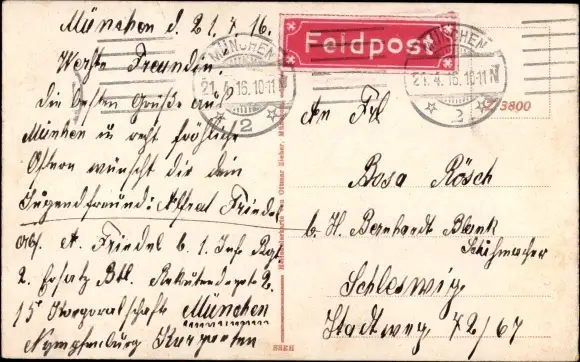 München d. 21.4.16.
Werte Freundin!
Die besten Grüße aus
München u. recht fröhliche
Ostern wünscht dir dein
Jugendfreund: Alfred Friedel
A. Friedel b. 1. Inf. Rgt.
2. Ersatz Btl. Rekrutendepot 2.
15 Korporalschaft München
Nymphenburg
Feldpost
MÜNCHEN
21.4.16.10-11N
2
MÜNCHEN
21.4.16.10-11N
3800
An Frl.
Rosa Rösch
b. H. Bernhardt Blank
Schuhmacher
Schleswig
Stadtweg 72/67
von Ottmar Zieher, München